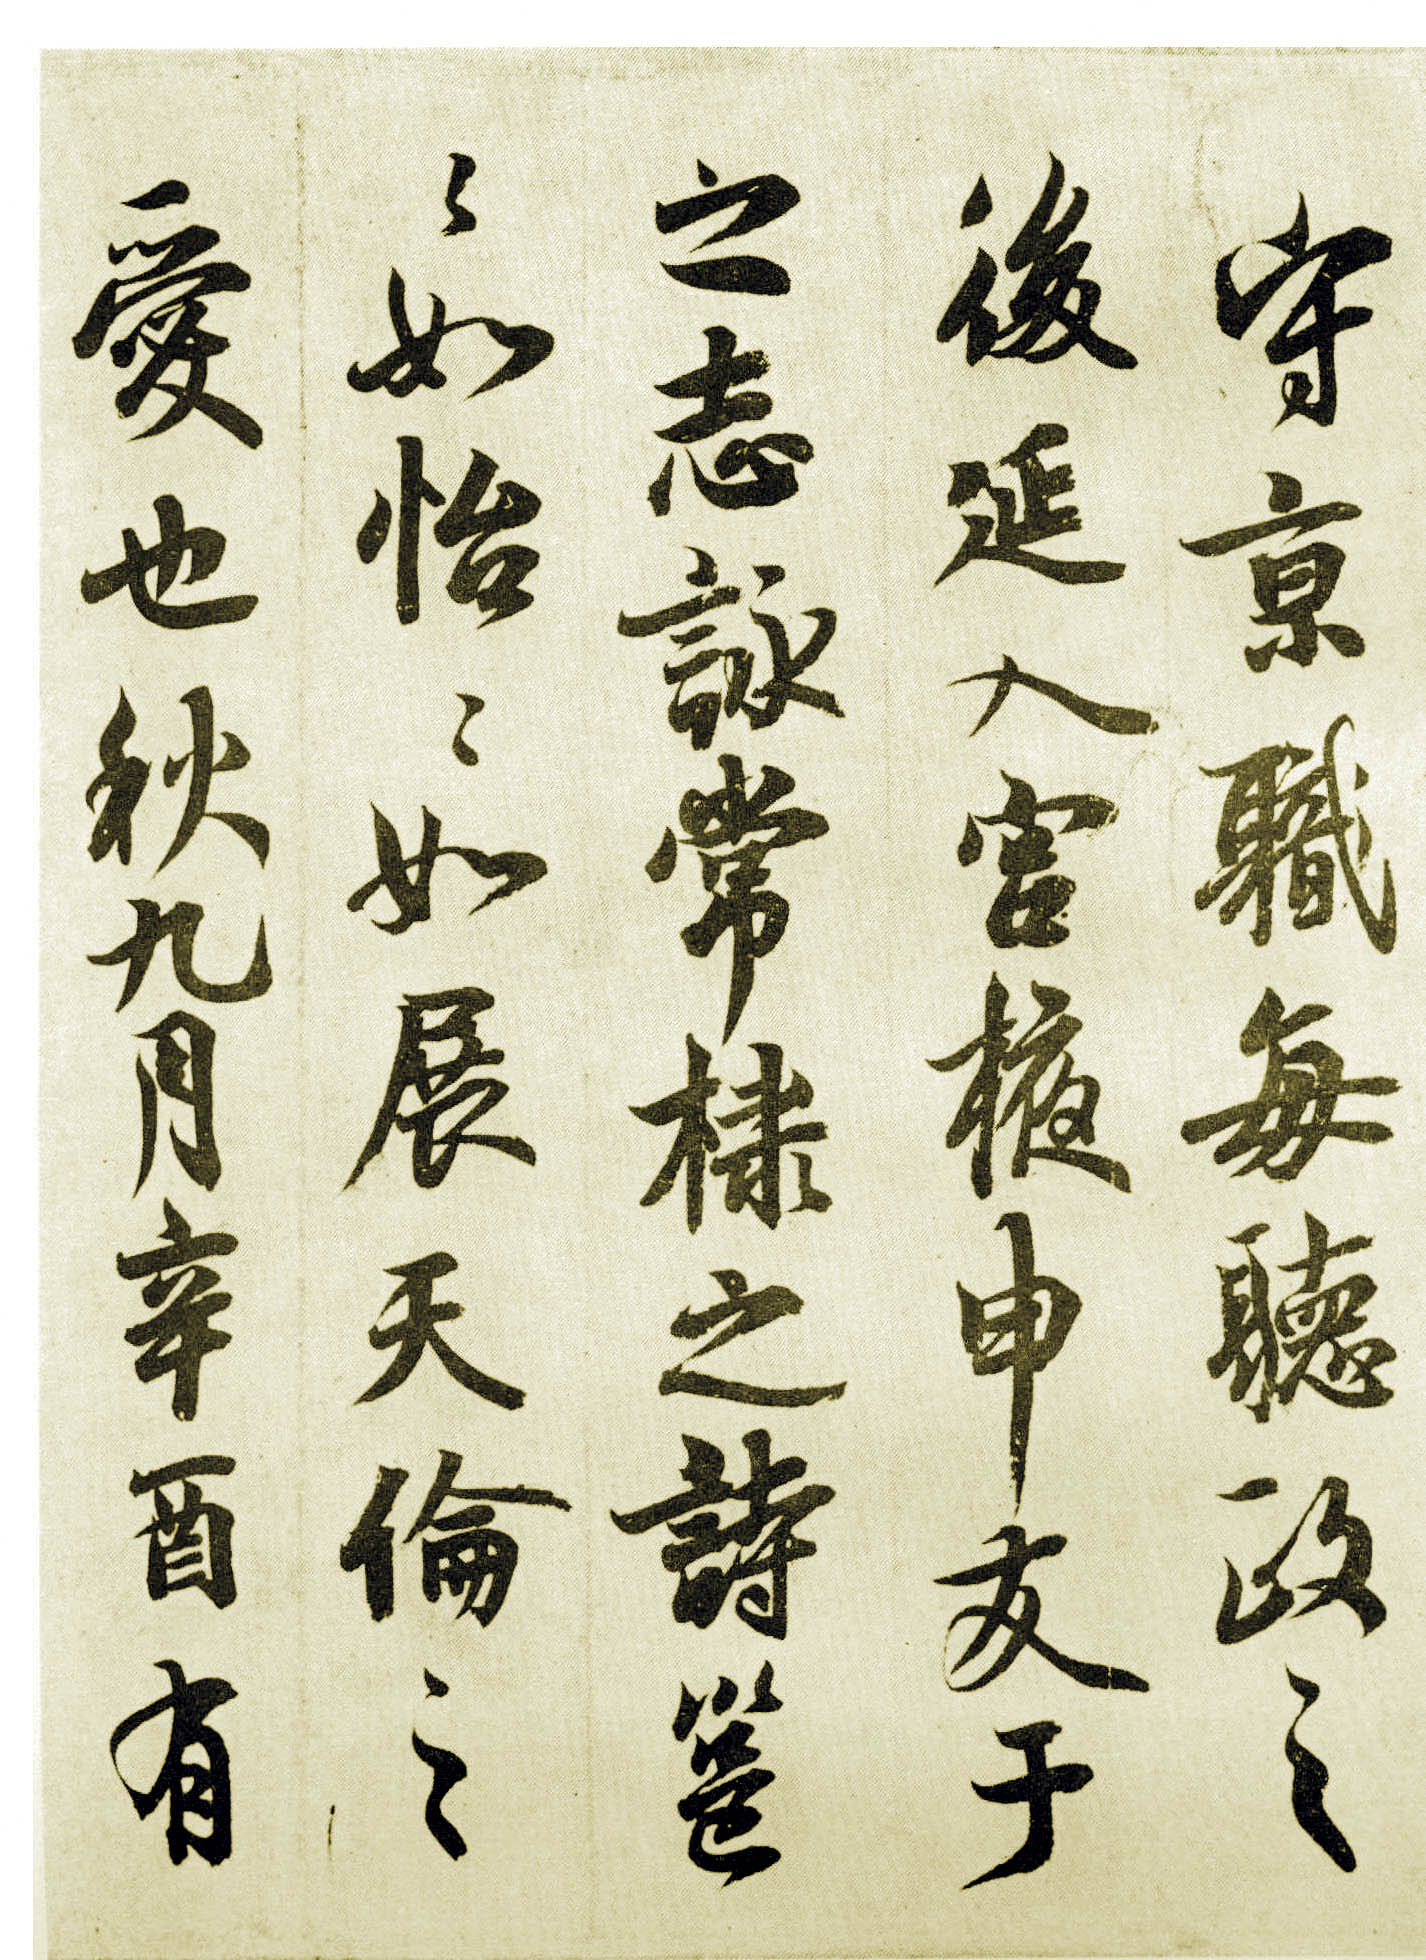 守京職每聽政之
後延入宮掖申友于
之志詠常棣之詩邕
々如怡々如展天倫之
愛也秋九月辛酉有